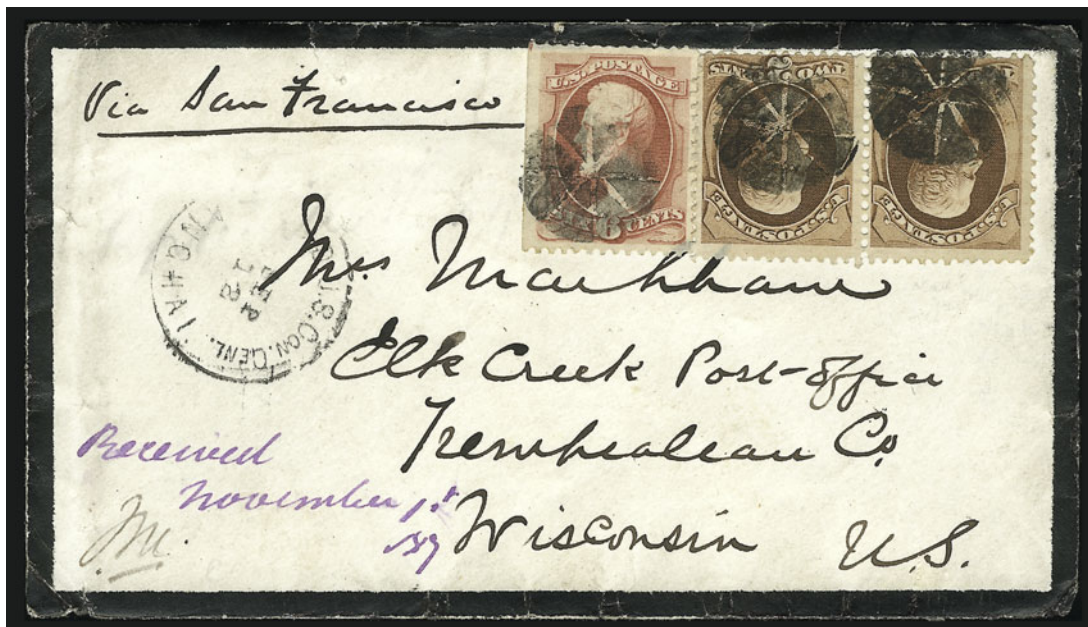 Via San Francisco
U.S. POSTAGE
6 CENTS
U.S. POSTAGE
U.S. POSTAGE
U.S. CON. GENL.
SEP
Mrs Markham
Elk Creek Post-office
Trempealeau Co.
Wisconsin U.S.
Received
November 1st